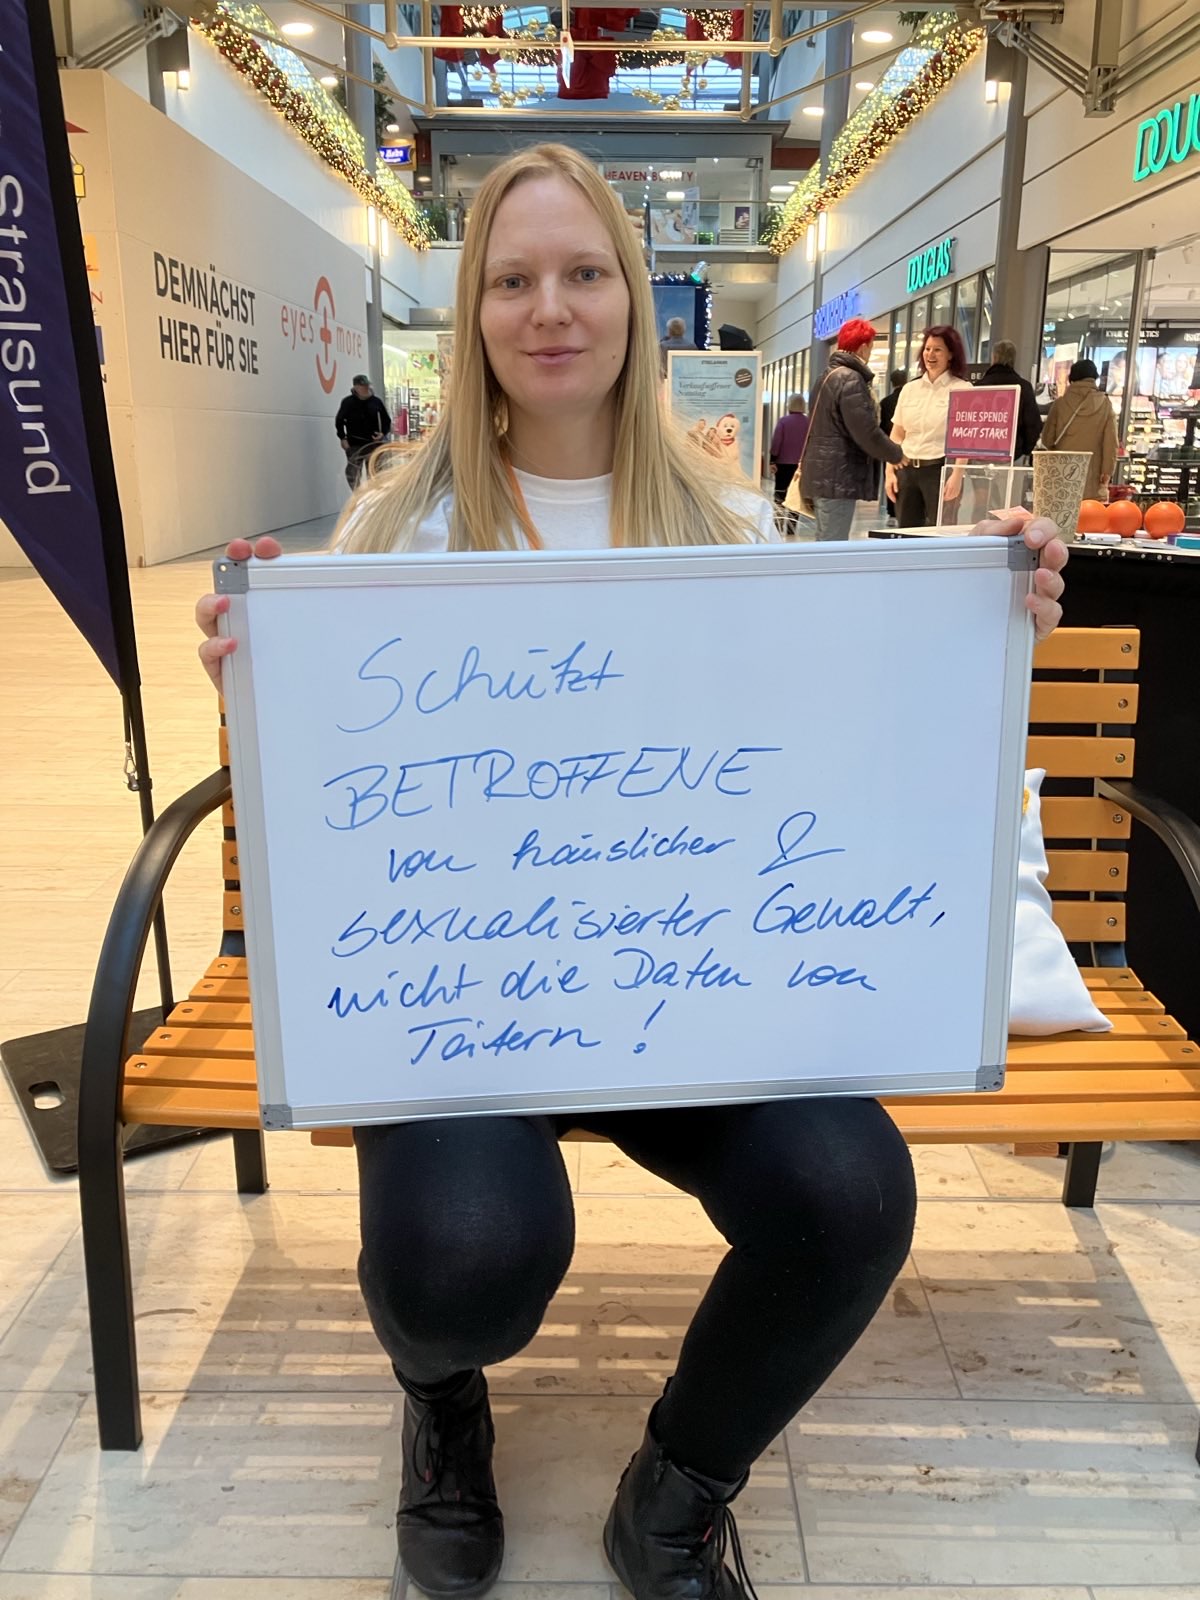 stralsund
DEMNÄCHST
HIER FÜR SIE
eyes + more
HEAVEN BEAUTY
DOUGLAS
DOUG
STRELAPARK
Verkaufsoffener
Sonntag
DEINE SPENDE
MACHT STARK!
Schützt
BETROFFENE
von häuslicher &
sexualisierter Gewalt,
nicht die Daten von
Tätern!